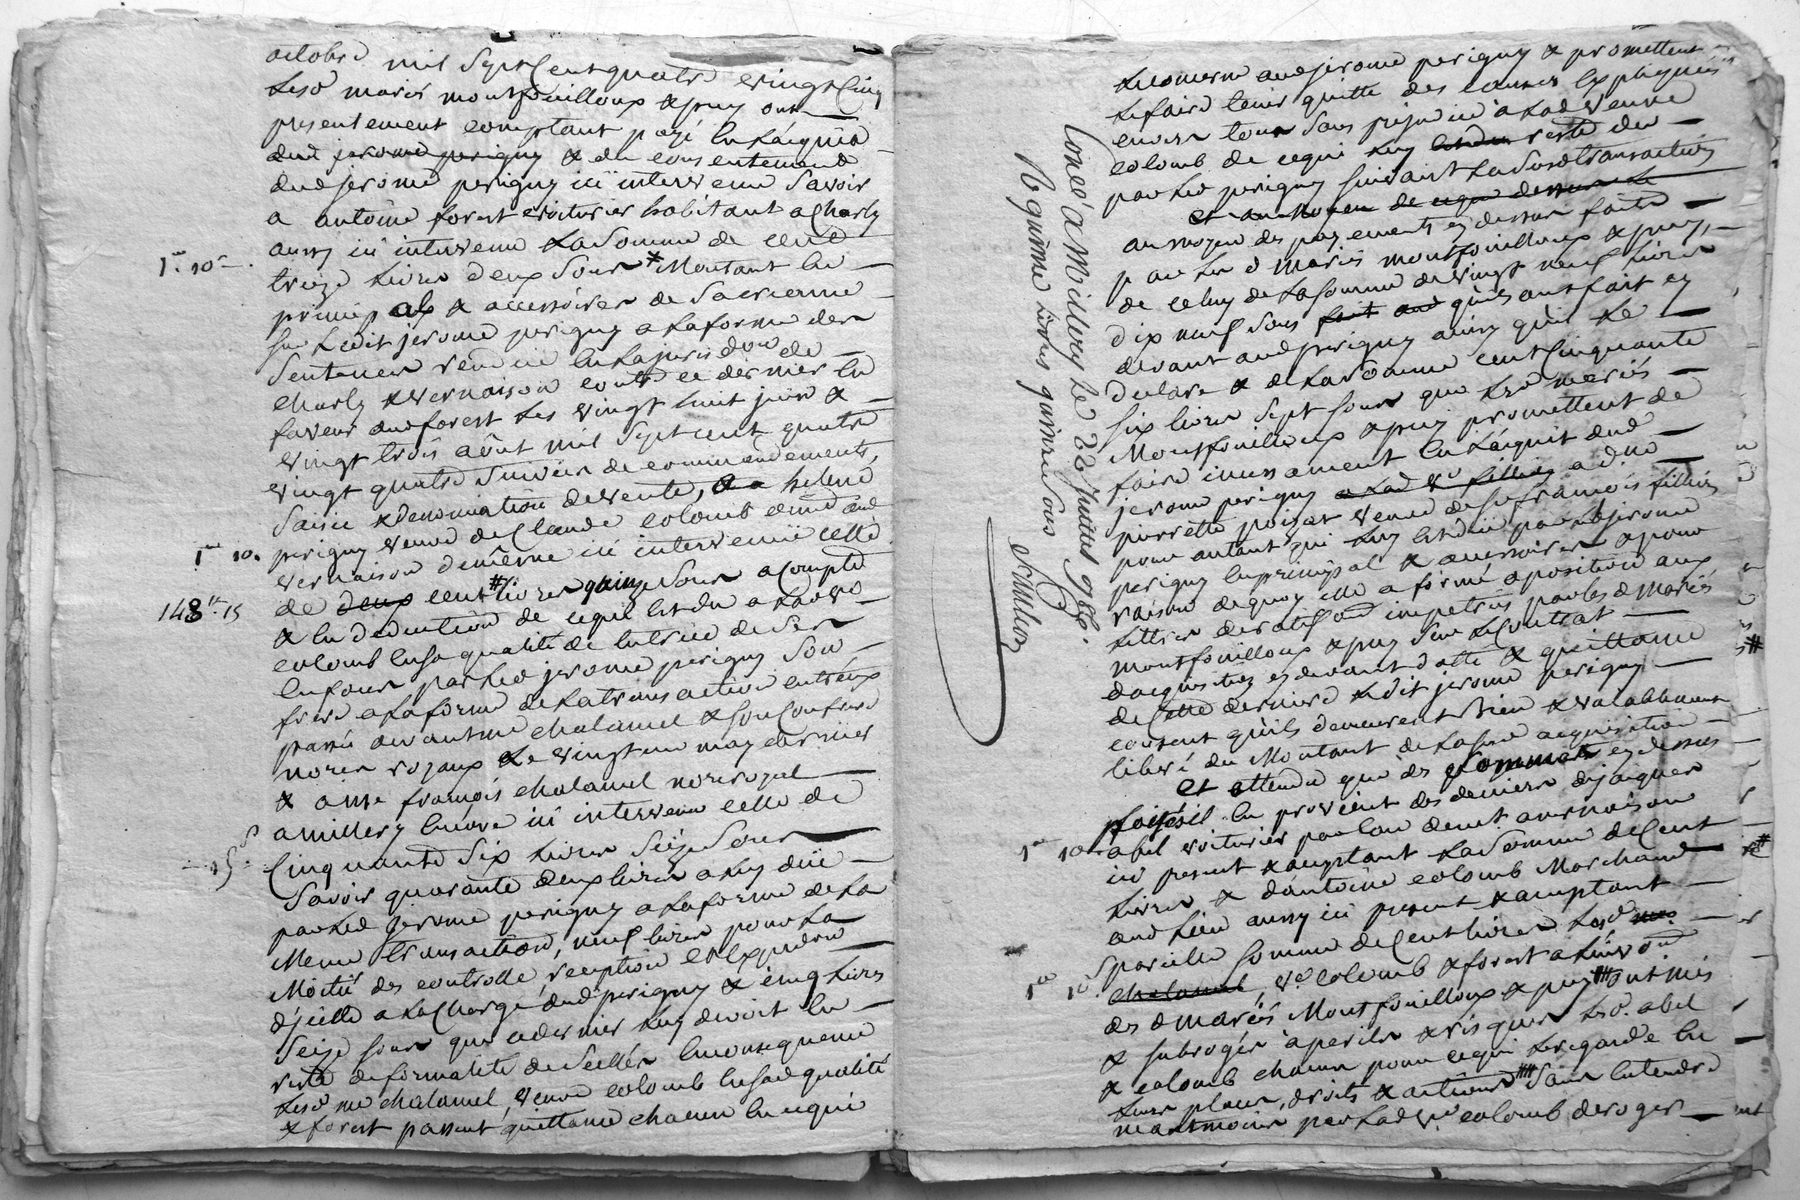 octobre mil Sept Cent quatre vingt Cinq
lesd mariés montfouilloux & puy ont
presentement comptant payé en l'acquit
dud jerome perigny & du consentement
dud jerome perigny ici intervenu Savoir
a antoine forest voiturier habitant a Charly
aussy ici intervenu la Somme de cent
1.re 10.
treize livres deux Sous * Montant en
principal & accessoires de Sa creance
Sur ledit jerome perigny a la forme des
Sentences rendue en la jurisd.on de
Charly & vernaison contre ce dernier en
faveur dud forest les vingt huit juin &
vingt trois août mil Sept cent quatre
vingt quatre Suivies de commandements,
Saisie & denonciation de vente, a helene
perigny veuve de Claude colomb
1.re 10.
vernaison demême ici intervenüe celle
de deux cent # livres quinze Sous a Compte
148.tt 15
& en deduction de cequi est du a lad ve
colomb en sa qualité de tutrice de Ses
enfans par led jerome perigny Son
frere a la forme de la transaction entreux
passé devant me chalamel & Son Confrere
no.res royaux le vingt un may dernier
& a me françois chalamel no.re royal
a millery encore ici intervenu celle de
15 s
Cinquante Six livres Seize Sous
Savoir quarante deux livres a luy düe
par led jerome perigny a la forme de la
Meme transaction, neuf livres pour la
Moitié des controlle, reception & Expedition
d'jcelle a la Charge dud perigny & cinq livres
Seize Sous que ce dernier luy devoit en
reste de formalité de Scellés en consequence
lesd me chalamel, veuve colomb en sad qualité
& forest passent quittance chacun en cequi
les concerne aud jerome perigny & promettent
le faire tenir quitte des causes Expliquées
envers tous Sans prejudice a lad veuve
colomb de cequi luy reste du
par led perigny Suivant la Susd transaction
et au moyen de ceque dessus le
au moyen des payements cy dessus faits
par les d mariés montfouilloux & puy,
de celuy de la Somme de vingt neuf livres
dix neuf Sous fait aud qu'ils ont fait cy
devant aud perigny ainsy qu'il le
declare & de la Somme cent Cinquante
Six livres Sept Sous que lesd mariés
Montfouilloux & puy promettent de
faire incessament en l'acquit dud
jerome perigny a lad ve fillion a dlle
pierrette poizat veuve de Sr françois fillion
pour autant qui luy est du par led jerome
perigny en principal & accessoires & pour
raison dequoy elle a formé oposition aux
lettres de ratif.on impetrés par les d mariés
montfouilloux & puy Sur le Contrat
d'acquisition cy devant datte & quittance
de Cette derniere ledit jerome perigny
consent qu'ils demeurent bien & valablement
liberé du Montant de la Susd acquisition
Et attendu que des Sommes cy dessus
payés il en provient des deniers de jacques
1.re 10.
abel voiturier par eau demt a vernaison
ici present & acceptant la Somme de Cent
livres & d'antoine colomb Marchand
aud lieu aussy ici present & acceptant
pareille Somme de Cent livres lesd me.
1.re 10.
Chalamel, ve colomb & forest
des d Mariés Montfouilloux & puy ## ont mis
& subrogés a perils & risques lesd. abel
& colomb chacun pour cequi les regarde en
leurs places, droits & actions ### Sans entendre
neantmoins par lad ve colomb deroger
Con.é a Millery le 22 Juillet 1786.
R quinze livres quinze Sous